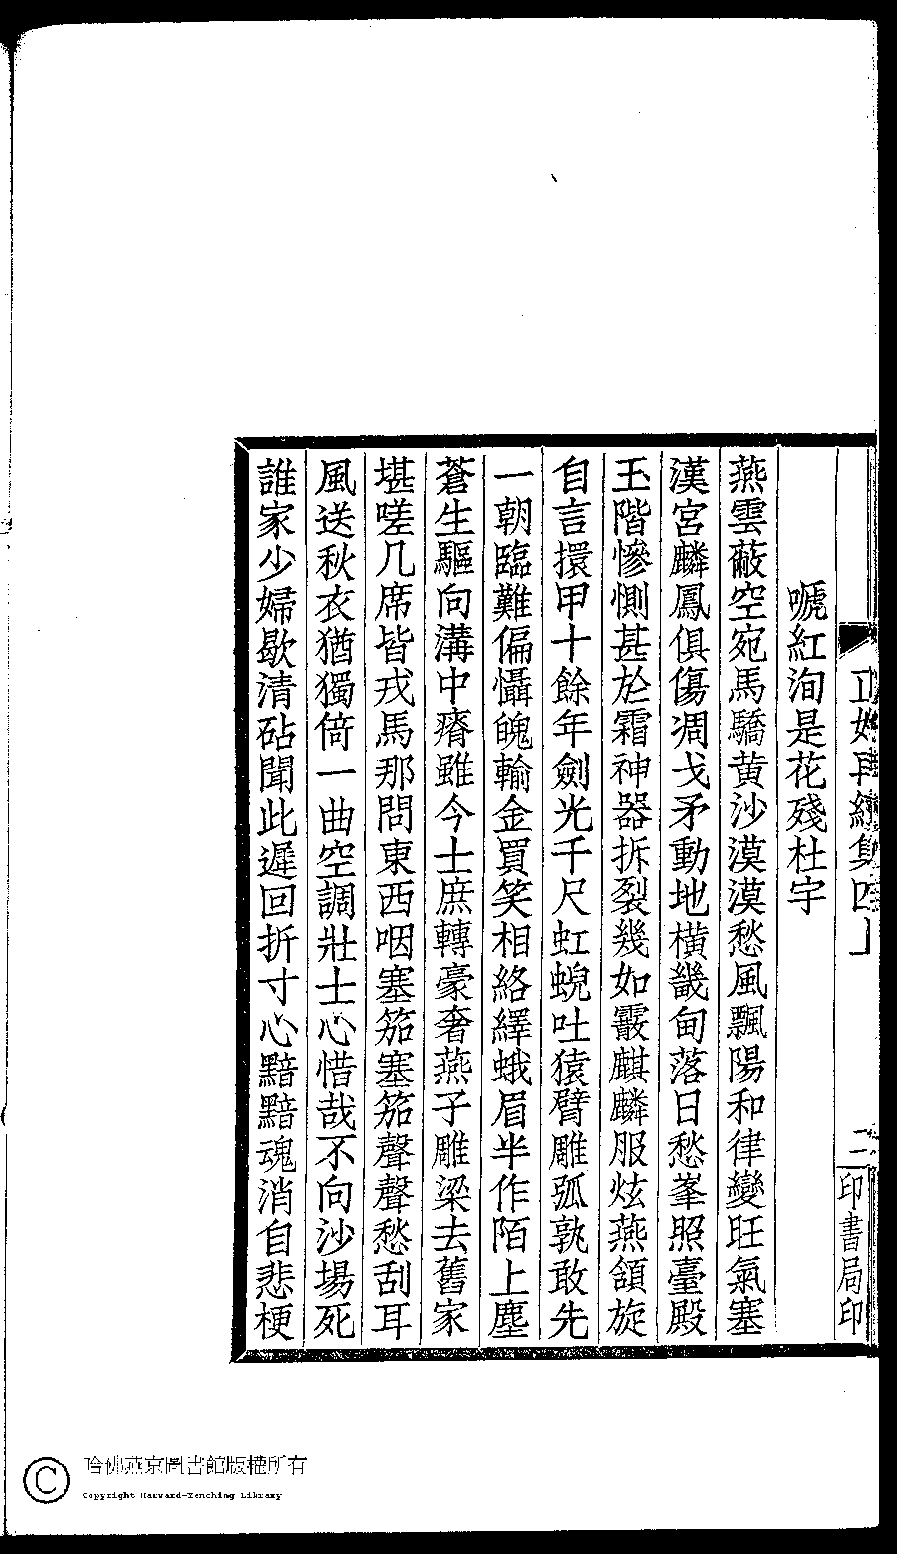 嗁紅洵是花殘杜宇
燕雲蔽空宛馬驕黃沙漠漠愁風飄陽和律變旺氣塞
漢宮麟鳳俱傷凋戈矛動地橫畿甸落日愁峯照臺殿
玉階慘惻甚於霜神器拆裂幾如霰麒麟服炫燕頷旋
自言擐甲十餘年劍光千尺虹蜺吐猿臂雕弧孰敢先
一朝臨難偏懾魄輸金買笑相絡繹蛾眉半作陌上塵
蒼生驅向溝中瘠雖今士庶轉豪奢燕子雕梁去舊家
堪嗟几席皆戎馬那問東西咽塞笳塞笳聲聲愁刮耳
風送秋衣猶獨倚一曲空調壯士心惜哉不向沙場死
誰家少婦歇清砧聞此遲回折寸心黯黯魂消自悲梗
二
印書局印
哈佛燕京圖書館版權所有
Copyright Harvard-Yenching Library